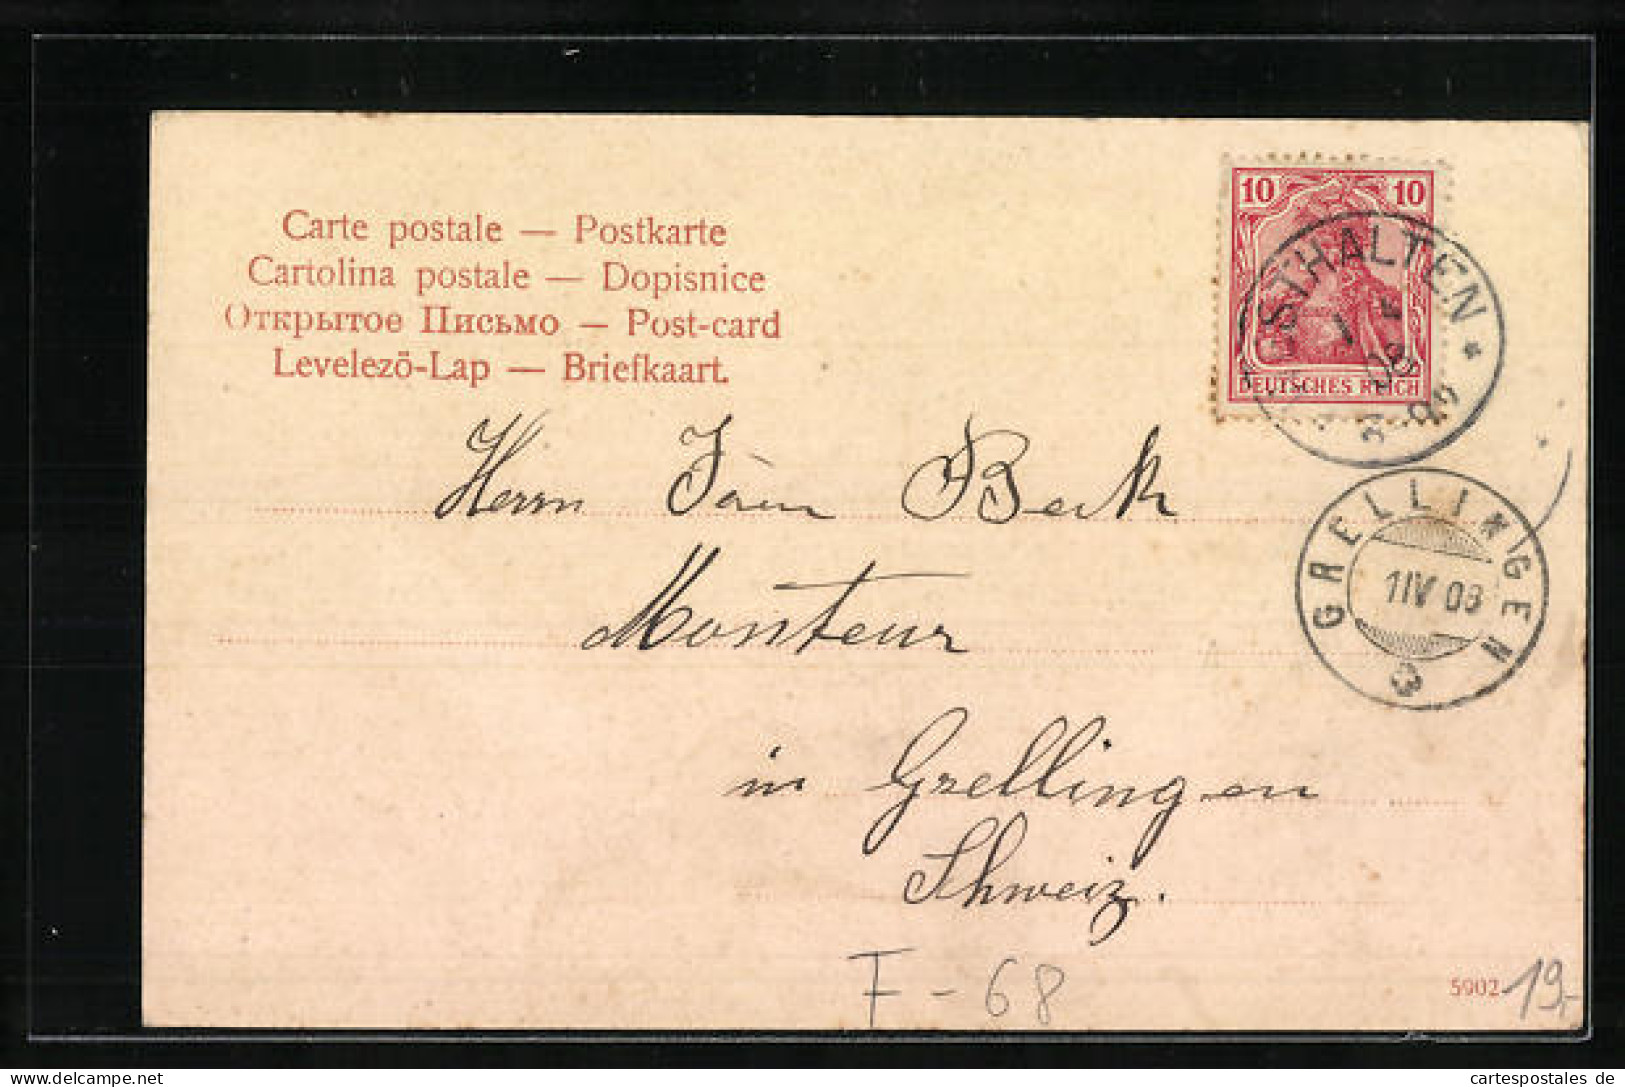 Carte postale — Postkarte
Cartolina postale — Dopisnice
Открытое Письмо — Post-card
Levelezö-Lap — Briefkaart.
10 10
DEUTSCHES REICH
STHALTEN *
08
GRELLINGEN
1 IV 08
Herrn Beck
Monteur
in Grellingen
Schweiz.
F - 68
5902 19,-
www.delcampe.net
cartespostales de